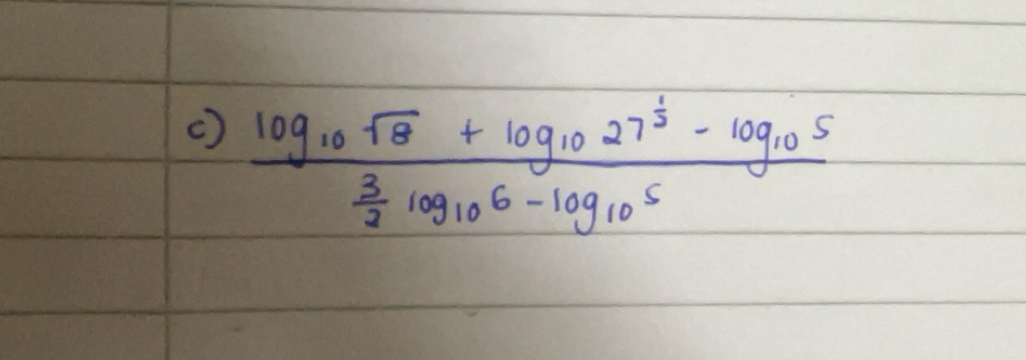 c) log₁₀ √8 + log₁₀ 27^⅓ - log₁₀ 5
3/2 log₁₀ 6 - log₁₀ 5